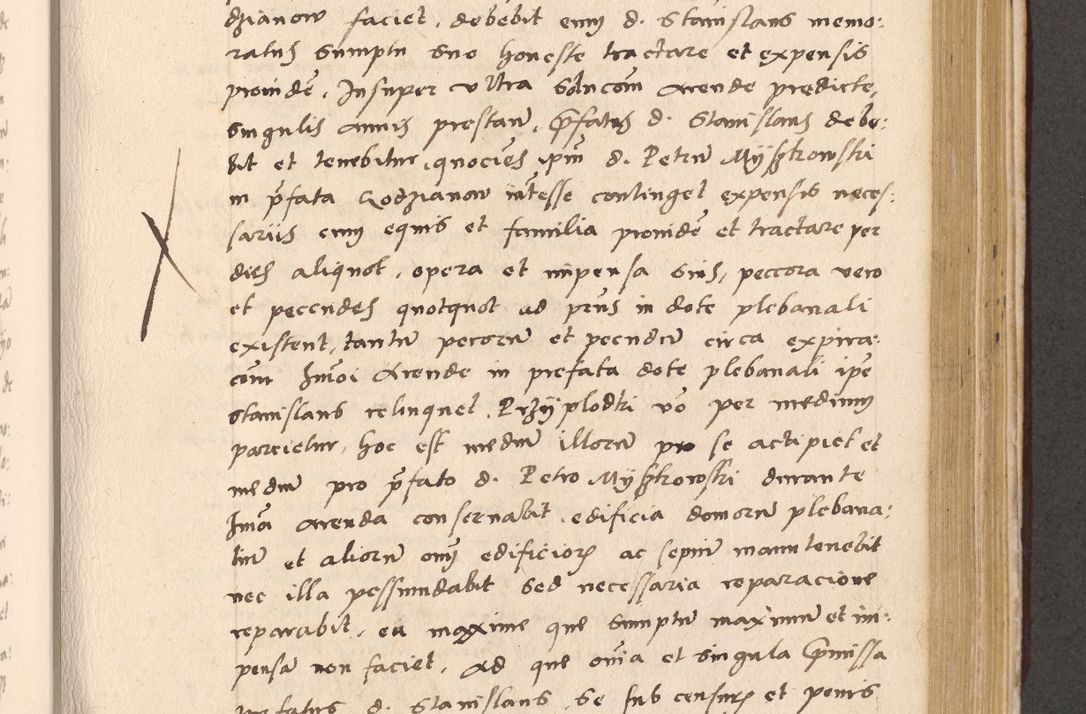 dzianow faciet, debebit enim d. Stanislaus memo:
ratus sumptu suo honeste tractare et expensis
proinde. Insuper ultra solucom arende predicte,
singulis annis prestan. Prefatus d. Stanislaus debe:
bit et tenebitur, quocies ipm d. Petru Myszkowski
in pfata Godzianow intesse continget expensis neces:
sariis cum equis et familia proinde et tractare per
dies aliquot, opera et impensa suis, peccora vero
et peccudes quotquot ad prns in dote plebanali
existent, tantu pecoru et pecudu circa expira:
com Imoi Arende in prefata dote plebanali ipe
Stanislaus relinquet. Przyplodki vo per medium
parcietur, hoc est mediu illoru pro se accipiet et
mediu pro pfato d. Petro Myszkowski durante
Imoi arenda conservabit, edificia domoru plebana:
liu et alioru oim edificiorum ac sepiu manutenebit
nec illa pessundabit sed necessaria reparacione
reparabit, ea maxime que sumptu maximu et im:
pensa non faciet. Ad que oia et singula Pmissa
prefatus d. Stanislaus se sub censuris et penis